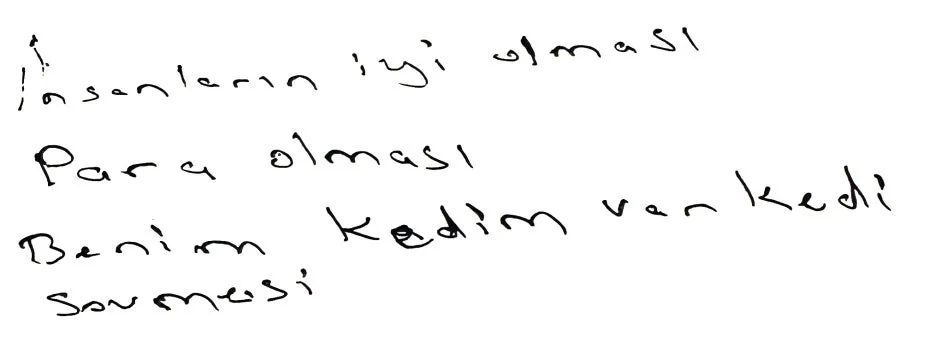 İnsanların iyi olması
Para olması
Benim kedim var kedi
sovmesi